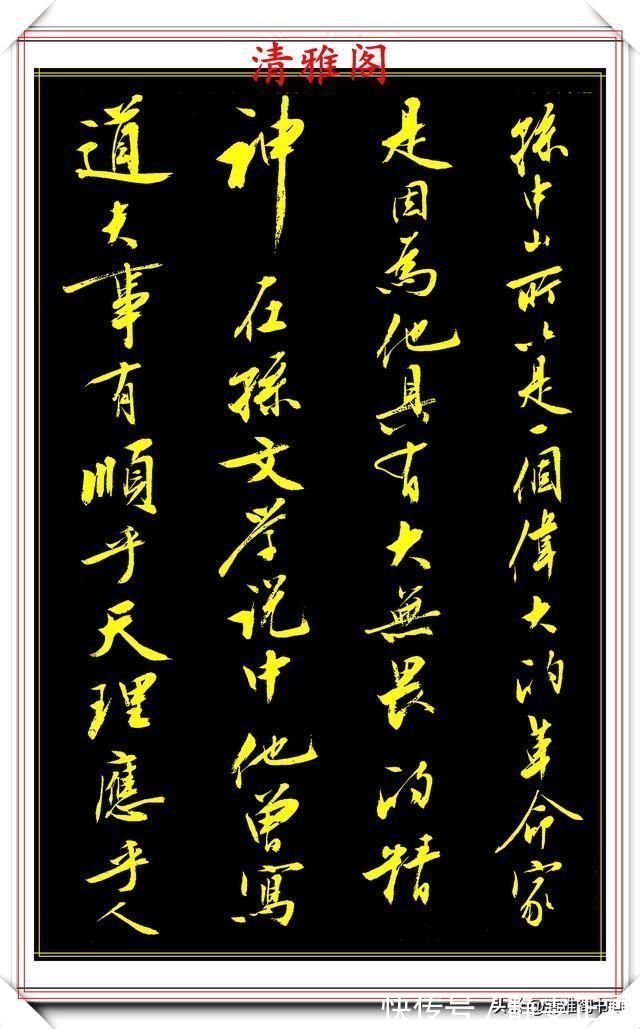 清雅阁
孫中山所以是一個偉大的革命家
是因為他具有大無畏的精
神在孫文学说中他曾寫
道夫事有順乎天理應乎人
快传号
头条@清雅阁书